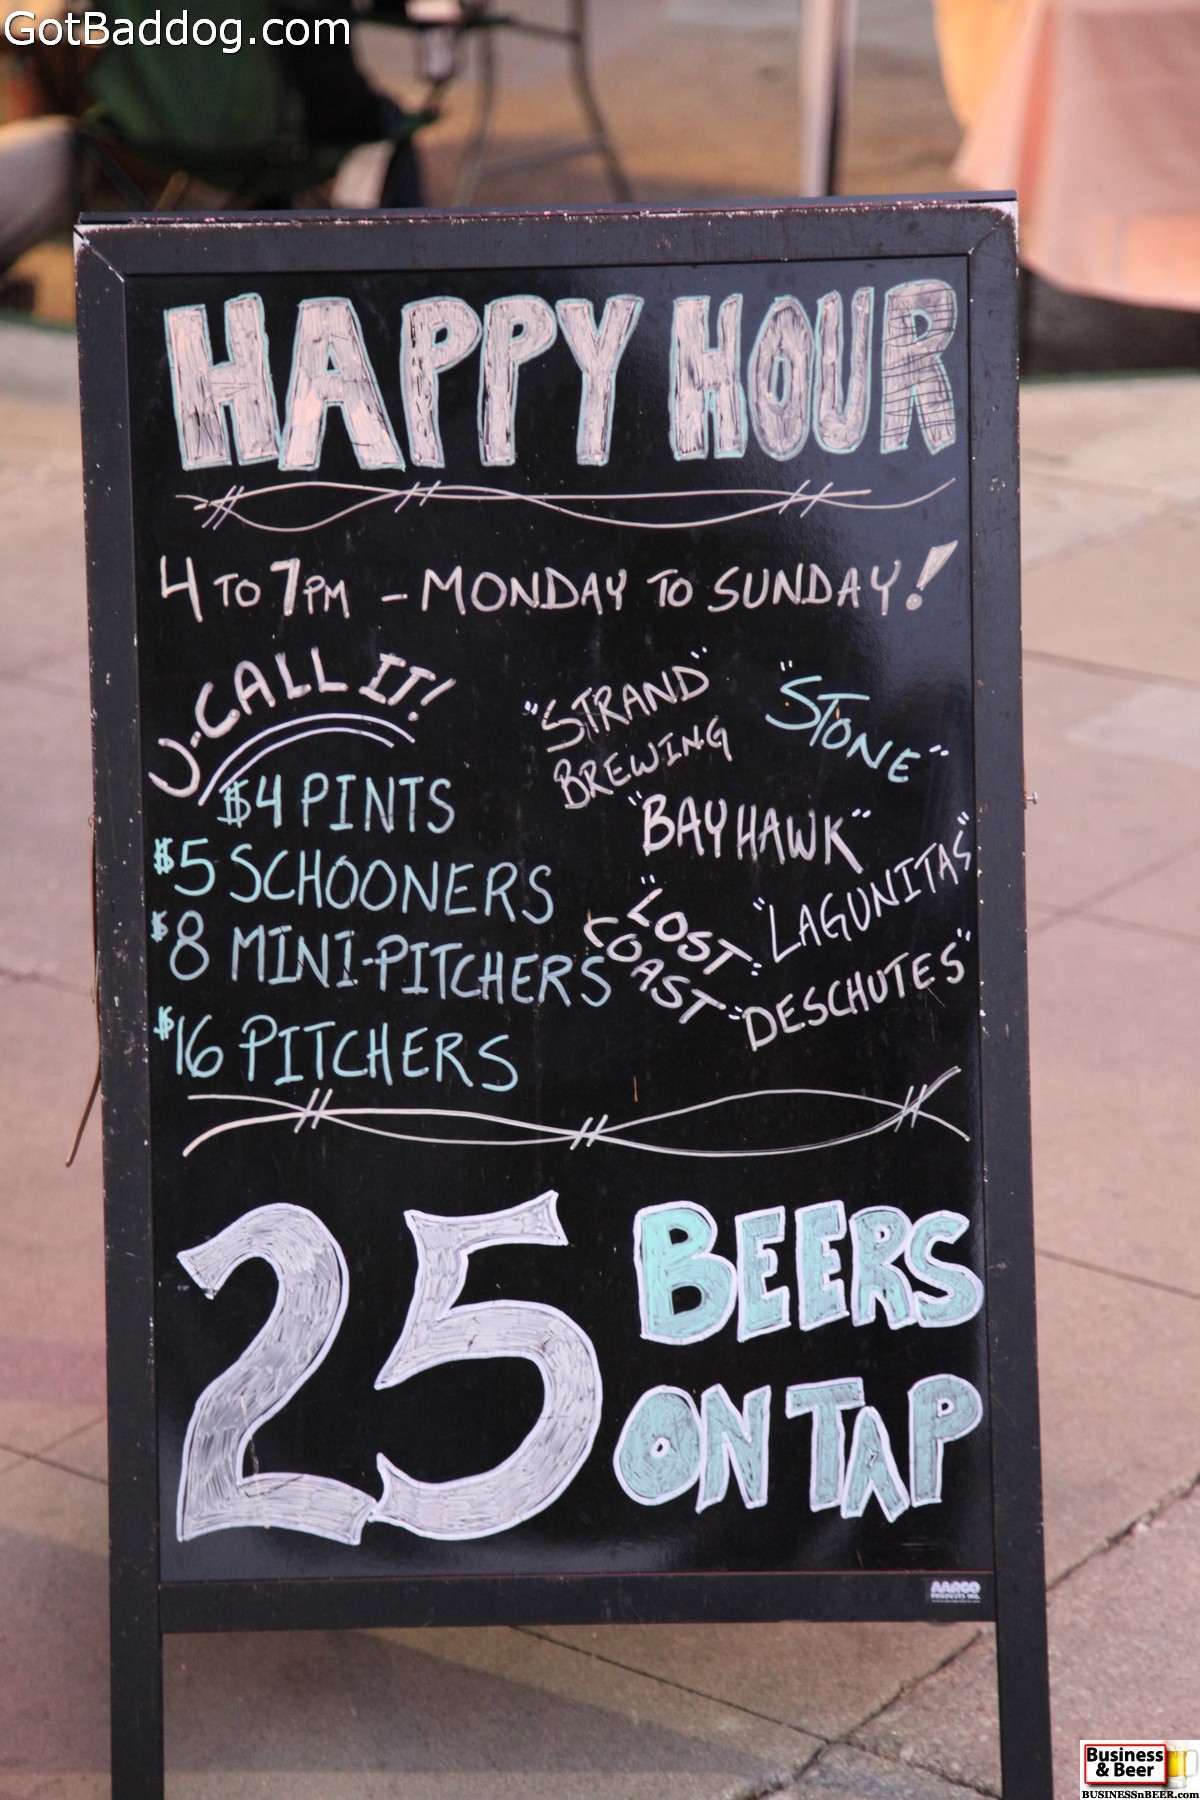 GotBaddog.com
HAPPY HOUR
4 TO 7PM - MONDAY TO SUNDAY!
U-CALL IT!
$4 PINTS
$5 SCHOONERS
$8 MINI-PITCHERS
$16 PITCHERS
"STRAND"
BREWING
"STONE"
"BAYHAWK"
"LAGUNITAS"
"LOST
COAST"
"DESCHUTES"
25 BEERS
ON TAP
AARCO
PRODUCTS INC.
Business
& Beer
BUSINESSnBEER.com